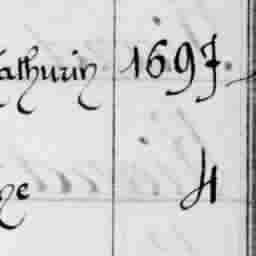 athurin 1697.
ne 4